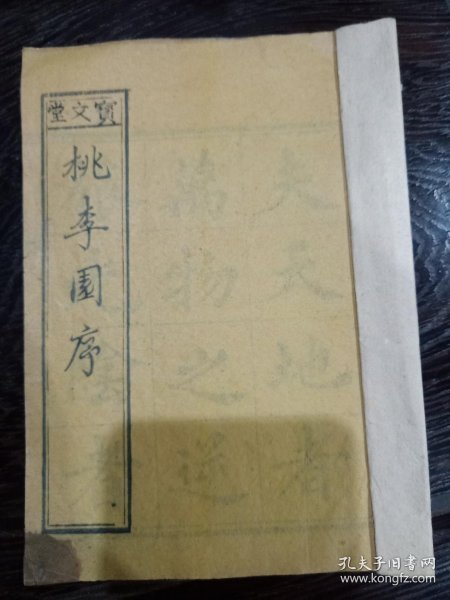 寶文堂
桃李園序
夫天地者
萬物之逆
孔夫子旧书网
www.kongfz.com